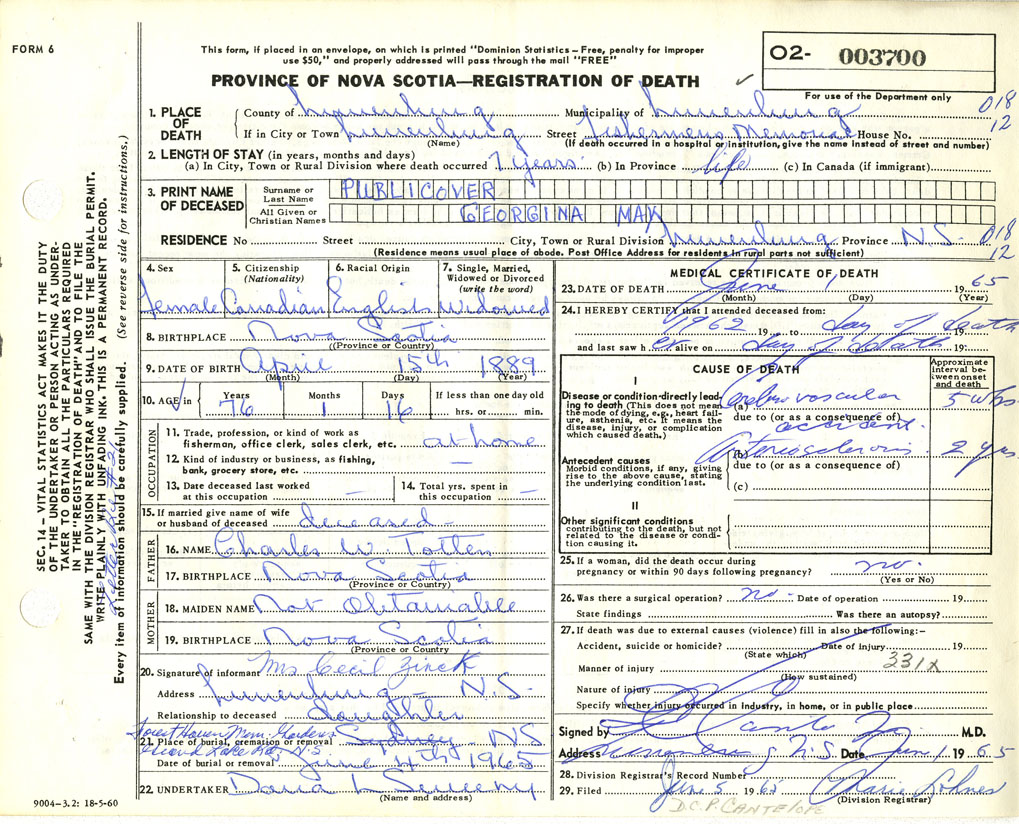 FORM 6
This form, if placed in an envelope, on which is printed "Dominion Statistics – Free, penalty for improper
use $50," and properly addressed will pass through the mail "FREE"
PROVINCE OF NOVA SCOTIA—REGISTRATION OF DEATH
O2- 003700
For use of the Department only
018
12
1. PLACE OF DEATH
County of Lunenburg Municipality of Lunenburg
If in City or Town Lunenburg Street Fishermens Memorial House No.
(Name) (If death occurred in a hospital or institution, give the name instead of street and number)
2. LENGTH OF STAY (in years, months and days)
(a) In City, Town or Rural Division where death occurred 7 years. (b) In Province life (c) In Canada (if immigrant)
3. PRINT NAME OF DECEASED
Surname or Last Name PUBLICOVER
All Given or Christian Names GEORGINA MAY
RESIDENCE No Street City, Town or Rural Division Lunenburg Province N.S. 018
12
(Residence means usual place of abode. Post Office Address for residents in rural parts not sufficient)
4. Sex 5. Citizenship (Nationality) 6. Racial Origin 7. Single, Married, Widowed or Divorced (write the word)
Female Canadian English Widowed
8. BIRTHPLACE Nova Scotia
(Province or Country)
9. DATE OF BIRTH April 15th 1889
(Month) (Day) (Year)
10. AGE in Years Months Days If less than one day old
76 1 16 hrs. or min.
OCCUPATION
11. Trade, profession, or kind of work as
fisherman, office clerk, sales clerk, etc. at home
12. Kind of industry or business, as fishing,
bank, grocery store, etc. —
13. Date deceased last worked
at this occupation —
14. Total yrs. spent in
this occupation —
15. If married give name of wife
or husband of deceased deceased -
FATHER
16. NAME Charles W. Totten
17. BIRTHPLACE Nova Scotia
(Province or Country)
MOTHER
18. MAIDEN NAME Not Obtainable
19. BIRTHPLACE Nova Scotia
(Province or Country
20. Signature of informant Mrs Cecil Zinck
Address Lunenburg - N.S.
Relationship to deceased daughter
Forest Haven Mem. Gardens
21. Place of burial, cremation or removal Sydney NS
Date of burial or removal June 4th 1965
22. UNDERTAKER Dana L Sweeny
(Name and address)
9004-3.2: 18-5-60
MEDICAL CERTIFICATE OF DEATH
23. DATE OF DEATH June 1 1965
(Month) (Day) (Year)
24. I HEREBY CERTIFY that I attended deceased from:
1962 19 to day of death 19
and last saw h er alive on day of death 19
CAUSE OF DEATH
Approximate interval between onset and death
I
Disease or condition directly leading to death (This does not mean the mode of dying, e.g., heart failure, asthenia, etc. It means the disease, injury, or complication which caused death.)
(a) Cerebrovascular 5 wks
due to (or as a consequence of)
accident.
Antecedent causes
Morbid conditions, if any, giving rise to the above cause, stating the underlying condition last.
(b) Arteriosclerosis 2 yrs.
due to (or as a consequence of)
(c)
II
Other significant conditions
contributing to the death, but not related to the disease or condition causing it.
25. If a woman, did the death occur during
pregnancy or within 90 days following pregnancy? no.
(Yes or No)
26. Was there a surgical operation? no - Date of operation 19
State findings Was there an autopsy?
27. If death was due to external causes (violence) fill in also the following:–
Accident, suicide or homicide? Date of injury 19
(State which) 331X
Manner of injury
(How sustained)
Nature of injury
Specify whether injury occurred in industry, in home, or in public place
Signed by M.D.
Address N.S. Date June 1 1965
28. Division Registrar's Record Number
29. Filed June 5 1965
(Division Registrar)
D.C.P. CANTELOPE
SEC. 14 – VITAL STATISTICS ACT MAKES IT THE DUTY
OF THE UNDERTAKER OR PERSON ACTING AS UNDERTAKER TO OBTAIN ALL THE PARTICULARS REQUIRED
IN THE "REGISTRATION OF DEATH" AND TO FILE THE
SAME WITH THE DIVISION REGISTRAR WHO SHALL ISSUE THE BURIAL PERMIT.
WRITE PLAINLY WITH UNFADING INK. THIS IS A PERMANENT RECORD.
Every item of information should be carefully supplied. (See reverse side for instructions.)